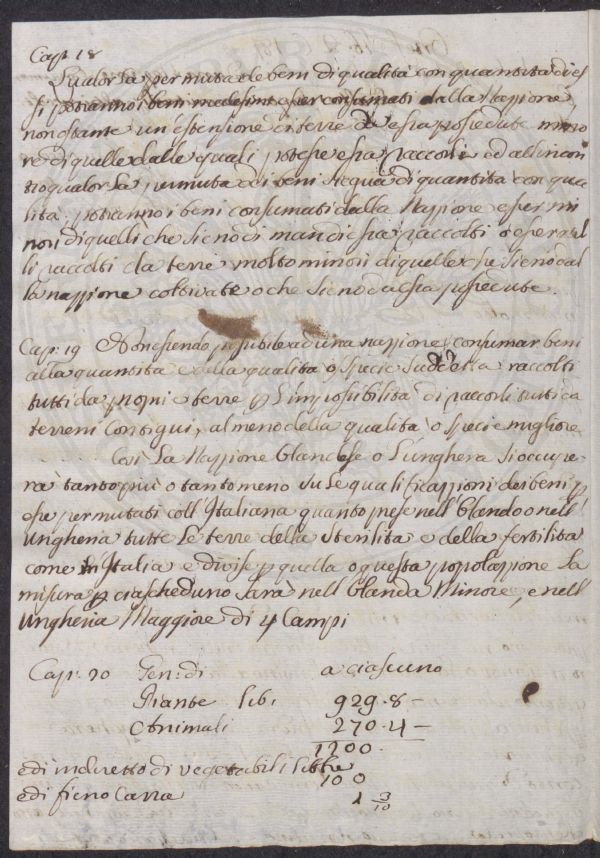 Cap: 18
Qualor La permuta de beni di qualità con quantità di es
si potranno i beni medesimi esser consumati dalla Nazzione,
non ostante un'estensione di terre da essa possedute mino
re di quelle dalle quali potesse essa raccorli, ed all'incon
tro qualor La permuta dei beni segua di quantità con qua
lità, potranno i beni consumati dalla Nazzione esser mi
nori di quelli che sieno di man di essa raccolti o esser
li raccolti da terre molto minori di quelle che sieno dal
la nazzione coltivate o che sieno da essa possedute.
Cap: 19 Non essendo possibile ad una nazzione consumar beni
alla quantità e della qualità o specie sudetta raccolti
tutti da proprie terre p L'impossibilità di raccorli tutti da
terreni contigui, almeno della qualità o specie migliore
Così La Nazzione Olandese o L'unghera si occupe
rà tanto più o tanto meno su le qualificazzioni dei beni p
esse permutati coll'Italiana quanto prese nell'Olanda o nell'
Ungheria tutte le terre della sterilità e della fertilità
come in Italia e divise p quella o questa popolazzione La
misura p ciascheduno sarà nell'Olanda Minore, e nell'
Ungheria Maggiore di 4 Campi
Cap: 20 Gen: di a ciascuno
Piante Lib: 929.8 –
Animali 270.4 –
1200.
e di indiretto di vegetabili libbre
100
e di fieno Carra 1 3/10